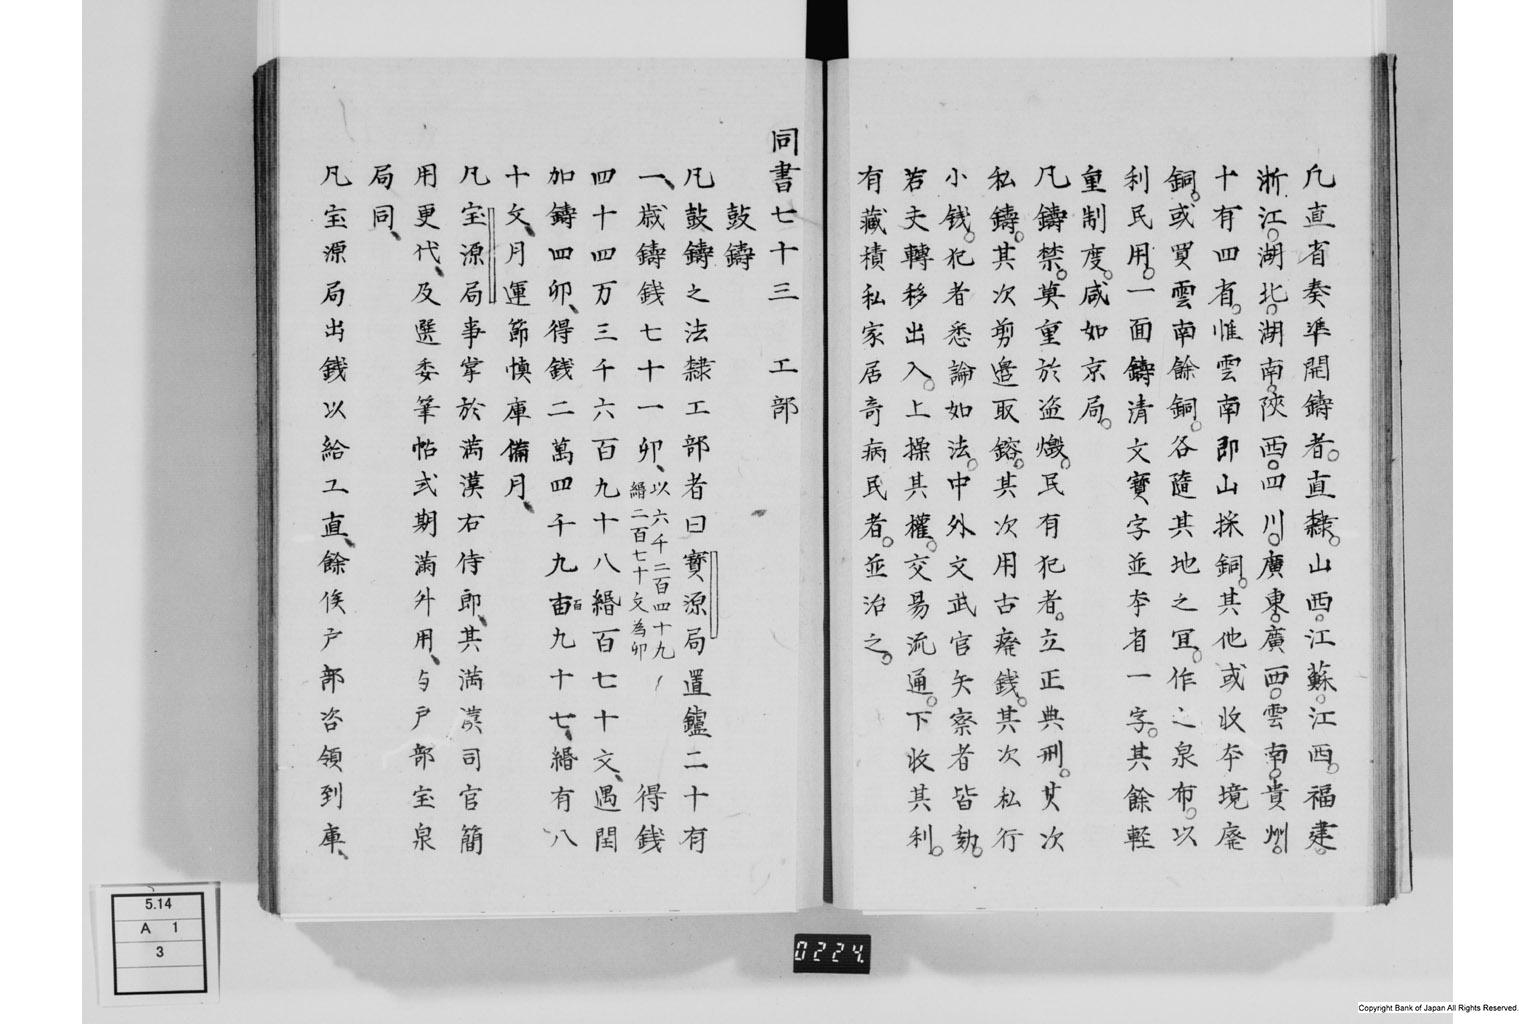 凡直省奏準開鑄者。直隸。山西。江蘇。江西。福建。
浙江。湖北。湖南。陝西。四川。廣東。廣西。雲南。貴州。
十有四省。惟雲南即山採銅。其他或收本境廢
銅。或買雲南餘銅。各隨其地之冝。作之泉布。以
利民用。一面鑄清文寶字並本省一字。其餘輕
重制度。咸如京局。
凡鑄禁。莫重於盗燬。民有犯者。立正典刑。其次
私鑄。其次剪邉取鎔。其次用古廢銭。其次私行
小銭。犯者悉論如法。中外文武官失察者皆劾。
若夫轉移出入。上操其權。交易流通。下收其利。
有藏積私家居奇病民者。並治之。
同書七十三 工部
鼓鑄
凡鼓鑄之法隸工部者曰寶源局置鑪二十有
一、歳鑄銭七十一卯、以六千二百四十九緡二百七十文為卯 得銭
四十四万三千六百九十八緡百七十文、遇閏
加鑄四卯、得銭二萬四千九百九十七、緡有八
十文、月運節慎庫備月、
凡宝源局事掌於満漢右侍郎、其満漢司官簡
用更代、及選委筆帖式期満外用、与戸部宝泉
局同、
凡宝源局出銭以給工直、餘俟戸部咨領到庫、
5.14
A 1
3
0224.
Copyright Bank of Japan All Rights Reserved.